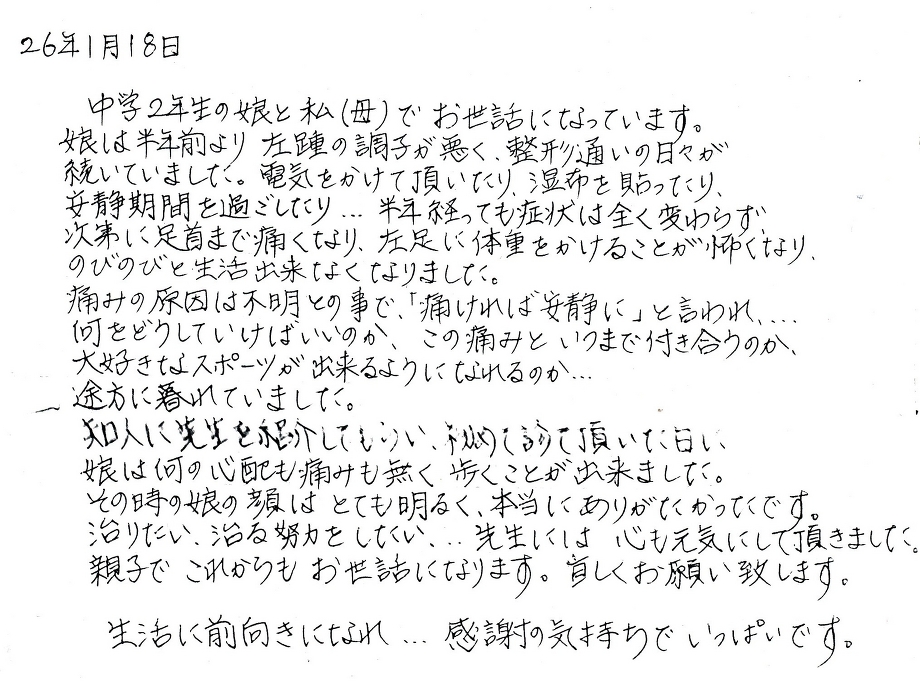 26年1月18日
中学2年生の娘と私(母)でお世話になっています。
娘は半年前より左踵の調子が悪く、整形通いの日々が
続いていました。電気をかけて頂いたり、湿布を貼ったり、
安静期間を過ごしたり…半年経っても症状は全く変わらず、
次第に足首まで痛くなり、左足に体重をかけることが怖くなり、
のびのびと生活出来なくなりました。
痛みの原因は不明との事で、「痛ければ安静に」と言われ、…
何をどうしていけばいいのか、この痛みといつまで付き合うのか、
大好きなスポーツが出来るようになれるのか…
途方に暮れていました。
知人に先生を紹介してもらい、初めて診て頂いた日に、
娘は何の心配も痛みも無く歩くことが出来ました。
その時の娘の顔はとても明るく、本当にありがたかったです。
治りたい、治る努力をしたい、…先生には心も元気にして頂きました。
親子でこれからもお世話になります。宜しくお願い致します。
生活に前向きになれ…感謝の気持ちでいっぱいです。